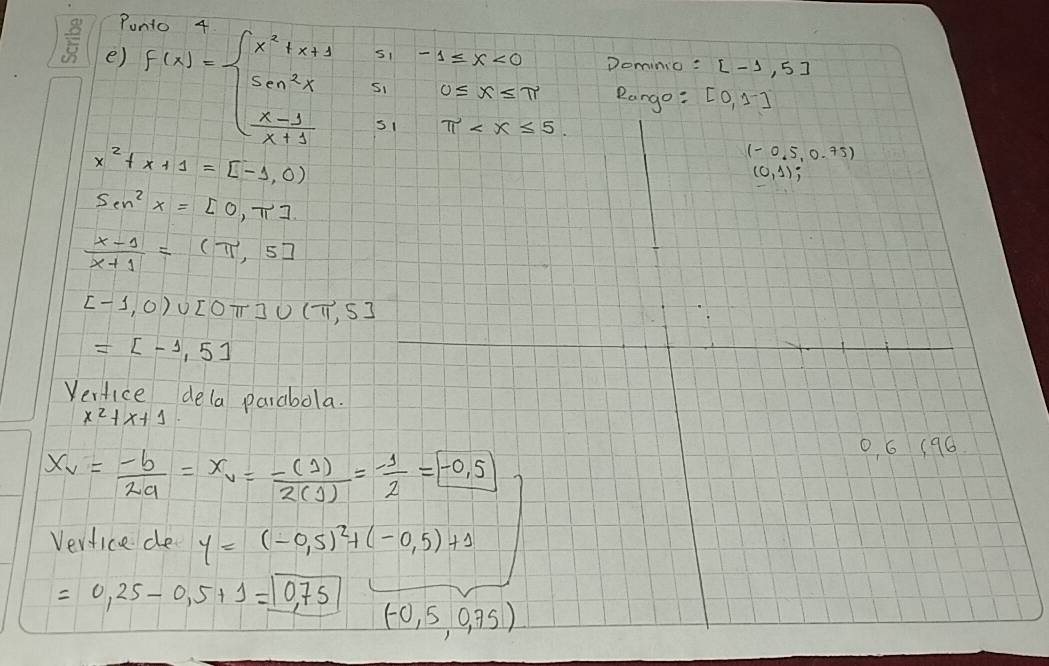 Scribe
Punto 4.
e) f(x) = { x² + x + 1 si -1 ≤ x < 0
sen²x si 0 ≤ x ≤ π
(x-1)/(x+1) si π < x ≤ 5.
Dominio: [-1, 5]
Rango: [0, 1]
(-0.5, 0.75)
(0,1);
x² + x + 1 = [-1, 0)
Sen² x = [0, π].
(x-1)/(x+1) = (π, 5]
[-1, 0) ∪ [0 π] ∪ (π, 5]
= [-1, 5]
Vertice dela parabola.
x² + x + 1.
Xv = -b/2a = Xv = -(1)/2(1) = -1/2 = -0,5
0,6 (96.
Vertice de y = (-0,5)² + (-0,5) + 1
= 0,25 - 0,5 + 1 = 0,75
(-0,5, 0,75)